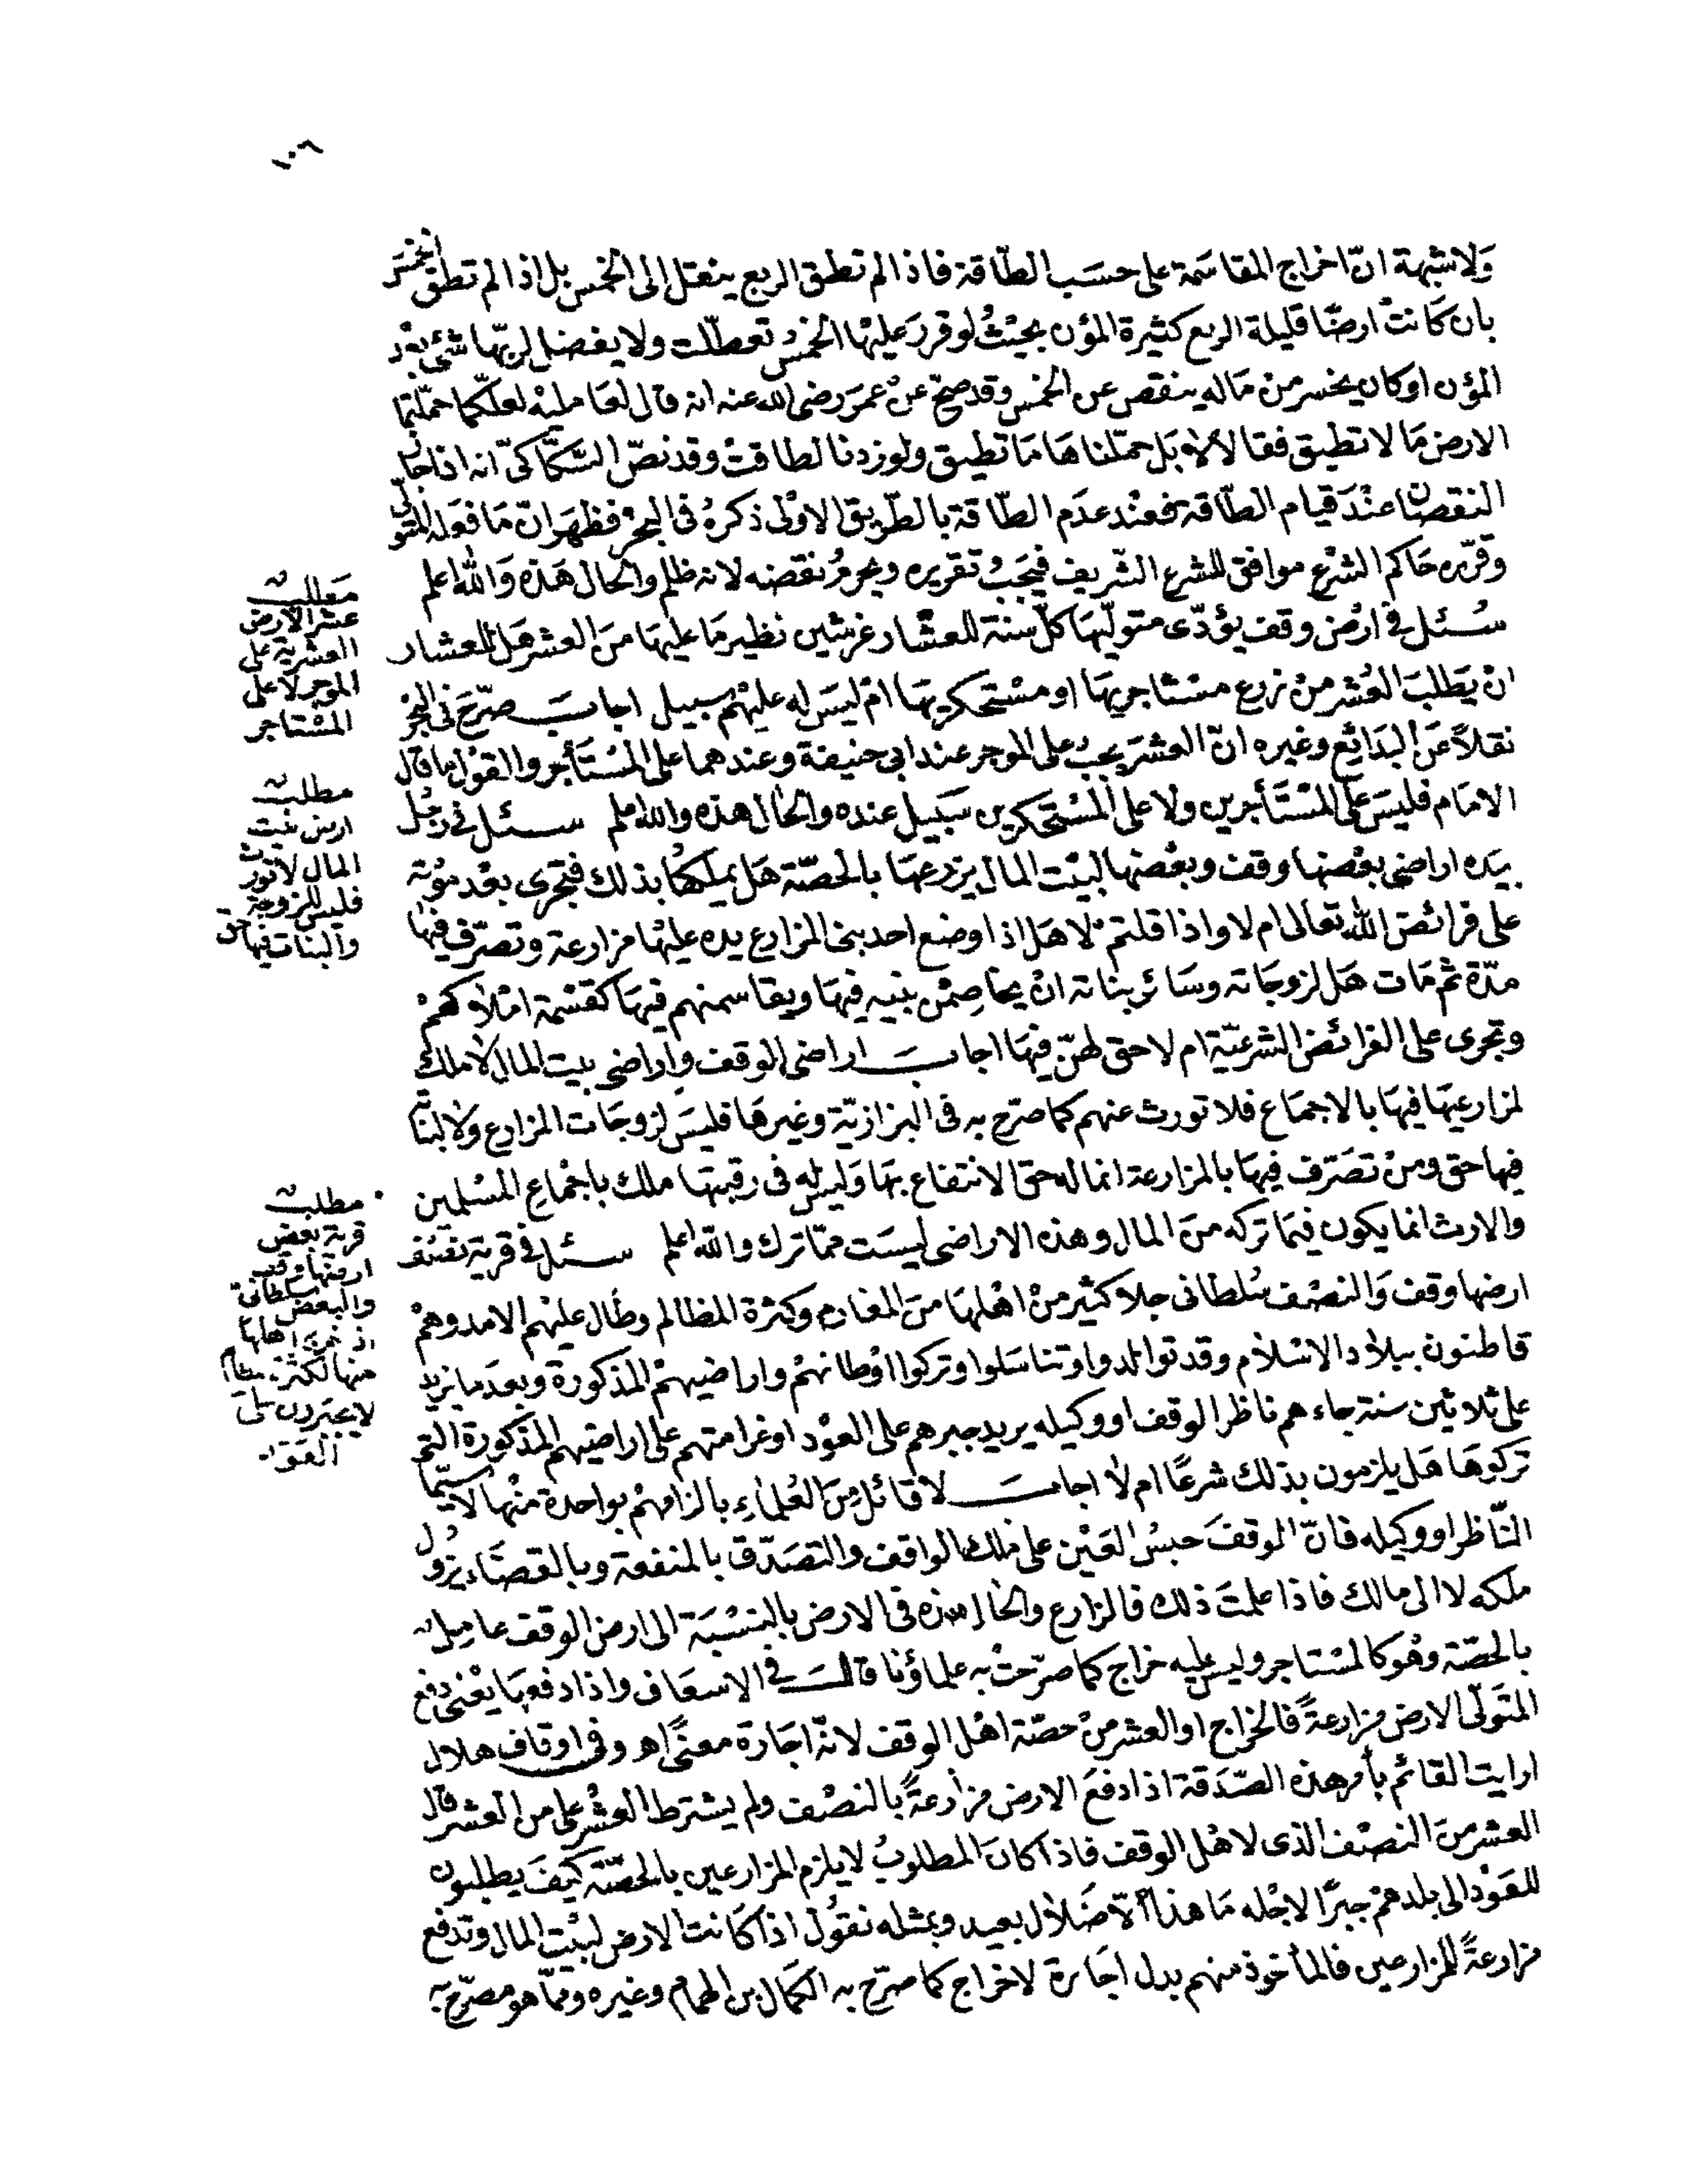 ١٠٦
ولا شبهة ان اخراج المقاسمة على حسب الطاقة فاذا لم تطق الربع ينقل الى الخمس بل اذا لم تطق الخمس
بان كانت ارضا قليلة الريع كثيرة المؤن بحيث لو قرر عليها الخمس تعطلت ولا يفضل لربها شئ بعد
المؤن او كان يخسر من ماله ينقص عن الخمس وقد صح عن عمر رضى الله عنه انه قال لعامليه لعلكما حملتما
الارض ما لا تطيق فقالا لا بل حملناها ما تطيق ولو زدنا لطاقت وقد نص السكاكى انه اذا جاز
النقصان عند قيام الطاقة فعند عدم الطاقة بالطريق الاولى ذكره فى البحر فظهر ان ما فعله المتولى
وقرره حاكم الشرع موافق للشرع الشريف فيجب تقريره ويحرم نقضه لانه ظلم والحال هذه والله اعلم
سئل فى ارض وقف يؤدى متوليها كل سنة للعشار غرشين نظير ما عليها من العشر هل للعشار
ان يطلب العشر من زرع مستاجريها او مستحكريها ام ليس له عليهم سبيل اجاب صرح فى البحر
نقلا عن البدائع وغيره ان العشر يجب على الموجر عند ابى حنيفة وعندهما على المستأجر والقول ما قال
الامام فليس على المستأجرين ولا على المستحكرين سبيل عنده والحال هذه والله اعلم سئل فى رجل
بيده اراضى بعضها وقف وبعضها لبيت المال يزرعها بالحصة هل يملكها بذلك فتجرى بعد موته
على فرائض الله تعالى ام لا واذا قلتم لا هل اذا وضع احد بنى المزارع يده عليها مزارعة وتصرف فيها
مدة ثم مات هل لزوجاته وسائر بناته ان يخاصمن بنيه فيها ويقاسمنهم فيها كقسمة املاكهم
وتجرى على الفرائض الشرعية ام لا حق لهن فيها اجاب اراضى الوقف واراضى بيت المال لا ملك
لمزارعيها فيها بالاجماع فلا تورث عنهم كما صرح به فى البزازية وغيرها فليس لزوجات المزارع ولا لبناته
فيها حق ومن تصرف فيها بالمزارعة انما له حق الانتفاع بها وليس له فى رقبتها ملك باجماع المسلمين
والارث انما يكون فيما تركه من المال وهذه الاراضى ليست مما ترك والله اعلم سئل فى قرية نصف
ارضها وقف والنصف سلطانى جلا كثير من اهلها من المغارم وكثرة المظالم وطال عليهم الامد وهم
قاطنون ببلاد الاسلام وقد توالدوا وتناسلوا وتركوا اوطانهم واراضيهم المذكورة وبعد ما يزيد
على ثلاثين سنة جاءهم ناظر الوقف او وكيله يريد جبرهم على العود او غرامتهم على اراضيهم المذكورة التى
تركوها هل يلزمون بذلك شرعا ام لا اجاب لا قائل من العلماء بالزامهم بواحدة منها لا سيما
الناظر او وكيله فان الوقف حبس العين على ملك الواقف والتصدق بالمنفعة وبالقضاء يزول
ملكه لا الى مالك فاذا علمت ذلك فالزارع والحال هذه فى الارض بالنسبة الى ارض الوقف عامل
بالحصة وهو كالمستاجر وليس عليه خراج كما صرحت به علماؤنا قال فى الاسعاف واذا دفعها يعنى دفع
المتولى الارض مزارعة فالخراج او العشر من حصة اهل الوقف لانه اجارة معنى اهـ وفى اوقاف هلال
ارايت القائم بأمر هذه الصدقة اذا دفع الارض مزارعة بالنصف ولم يشترط العشر على من العشر قال
العشر من النصف الذى لاهل الوقف فاذا كان المطلوب لا يلزم المزارعين بالحصة كيف يطلبون
للعود الى بلدهم جبرا لاجله ما هذا الا ضلال بعيد وبمثله نقول اذا كانت الارض لبيت المال وتدفع
مزارعة للمزارعين فالمأخوذ منهم بدل اجارة لا خراج كما صرح به الكمال بن الهمام وغيره ومما هو مصرح به
مطلب
عشر الارض
العشرية على
الموجر لا على
المستاجر
مطلب
ارض بيت
المال لا تورث
فليس للزوجة
والبنات فيها حق
مطلب
قرية بعض
ارضها وقف
والبعض سلطانى
منها لكثرة
لا يجبرون على
العود